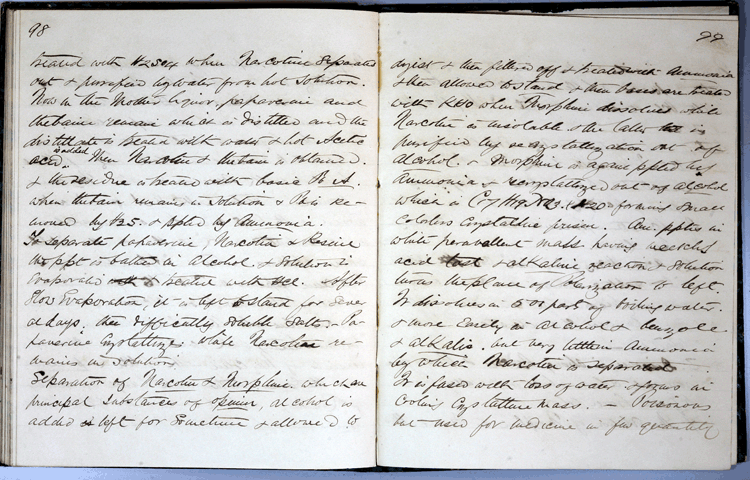 98
treated with H2SO4 when Narcotine Separated
out & purified by water from hot solution.
Now in the Mother liquor, papaverine and
thebaine remain which is distilled and the
distillate is treated with water & hot Acetic
acid. is added Then Narcotin & thebain is obtained.
& the residue is treated with basic
when thebain remains in solution & Pb is re-
moved by H2S. & pptted by Ammonia.
To separate papaverine, Narcotin & Resin
the ppt is boiled in Alcohol & Solution is
evaporated & treated with HCl. After
Slow Evaporation, it is left to stand for Sever
al days. the difficultly Soluble Salts, Pa-
paverine Crystallizes while Narcotin re-
mains in solution.
Separation of Narcotin & Morphine which are
principal substances of opium, alcohol is
added & left for Sometime & allowed to
99
digest & then filtered off & treated with Ammonia
& then allowed to stand & then bases are treated
with KHO when Morphine dissolves while
Narcotin is insoluble & the latter is
purified by recrystallization out of
alcohol. Morphine is again pptted by
Ammonia & recrystallized out of alcohol
which is C17H19NO3. H2O forming small
colorless crystalline prism. Am. pptes in
white mass having
acid & alkaline reaction & solution
turns the plane of Polarization to left.
It dissolves in 500 parts of boiling water.
& more easily in alcohol & benzole
& alkalis. but very little in Ammonia
by which Narcotin is separated.
It is fused with loss of water & forms in
Crystalline mass. — Poisonous
but used for medicine in few quantity